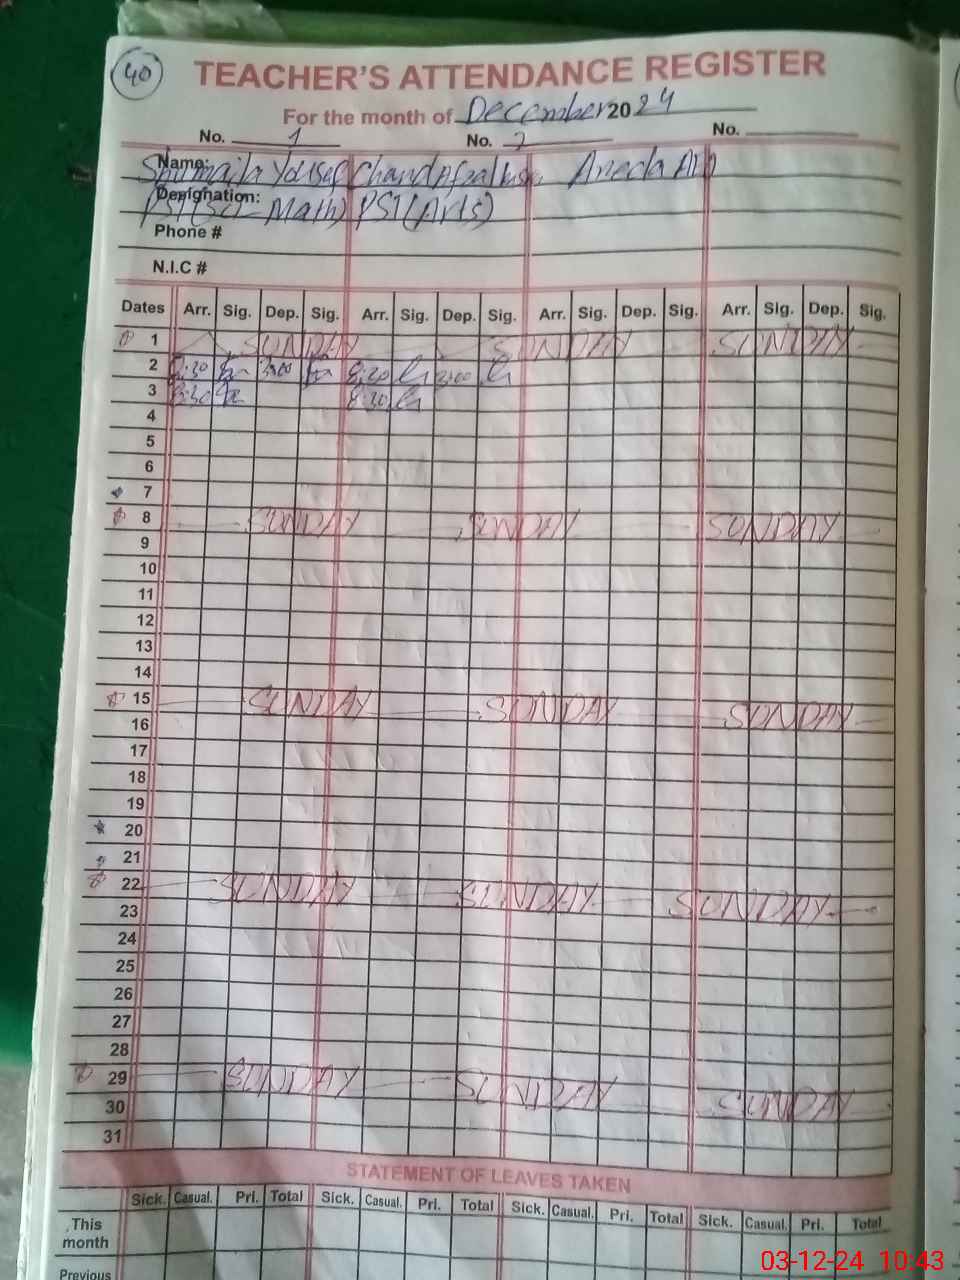 40
TEACHER'S ATTENDANCE REGISTER
For the month of December 2024
No. 1 No. 2 No.
Name: Shumaila Yousef Chand Afzal Aneela
Designation: PST(Sci-Math) PST(Arts)
Phone #
N.I.C #
Dates Arr. Sig. Dep. Sig. Arr. Sig. Dep. Sig. Arr. Sig. Dep. Sig. Arr. Sig. Dep. Sig.
1 SUNDAY SUNDAY SUNDAY
2 8:30 3:00 8:30 3:00
3 8:30 8:30
4
5
6
7
8 SUNDAY SUNDAY SUNDAY
9
10
11
12
13
14
15 SUNDAY SUNDAY SUNDAY
16
17
18
19
20
21
22 SUNDAY SUNDAY SUNDAY
23
24
25
26
27
28
29 SUNDAY SUNDAY SUNDAY
30
31
STATEMENT OF LEAVES TAKEN
Sick. Casual. Pri. Total Sick. Casual. Pri. Total Sick. Casual. Pri. Total Sick. Casual. Pri. Total
This
month
Previous
03-12-24 10:43